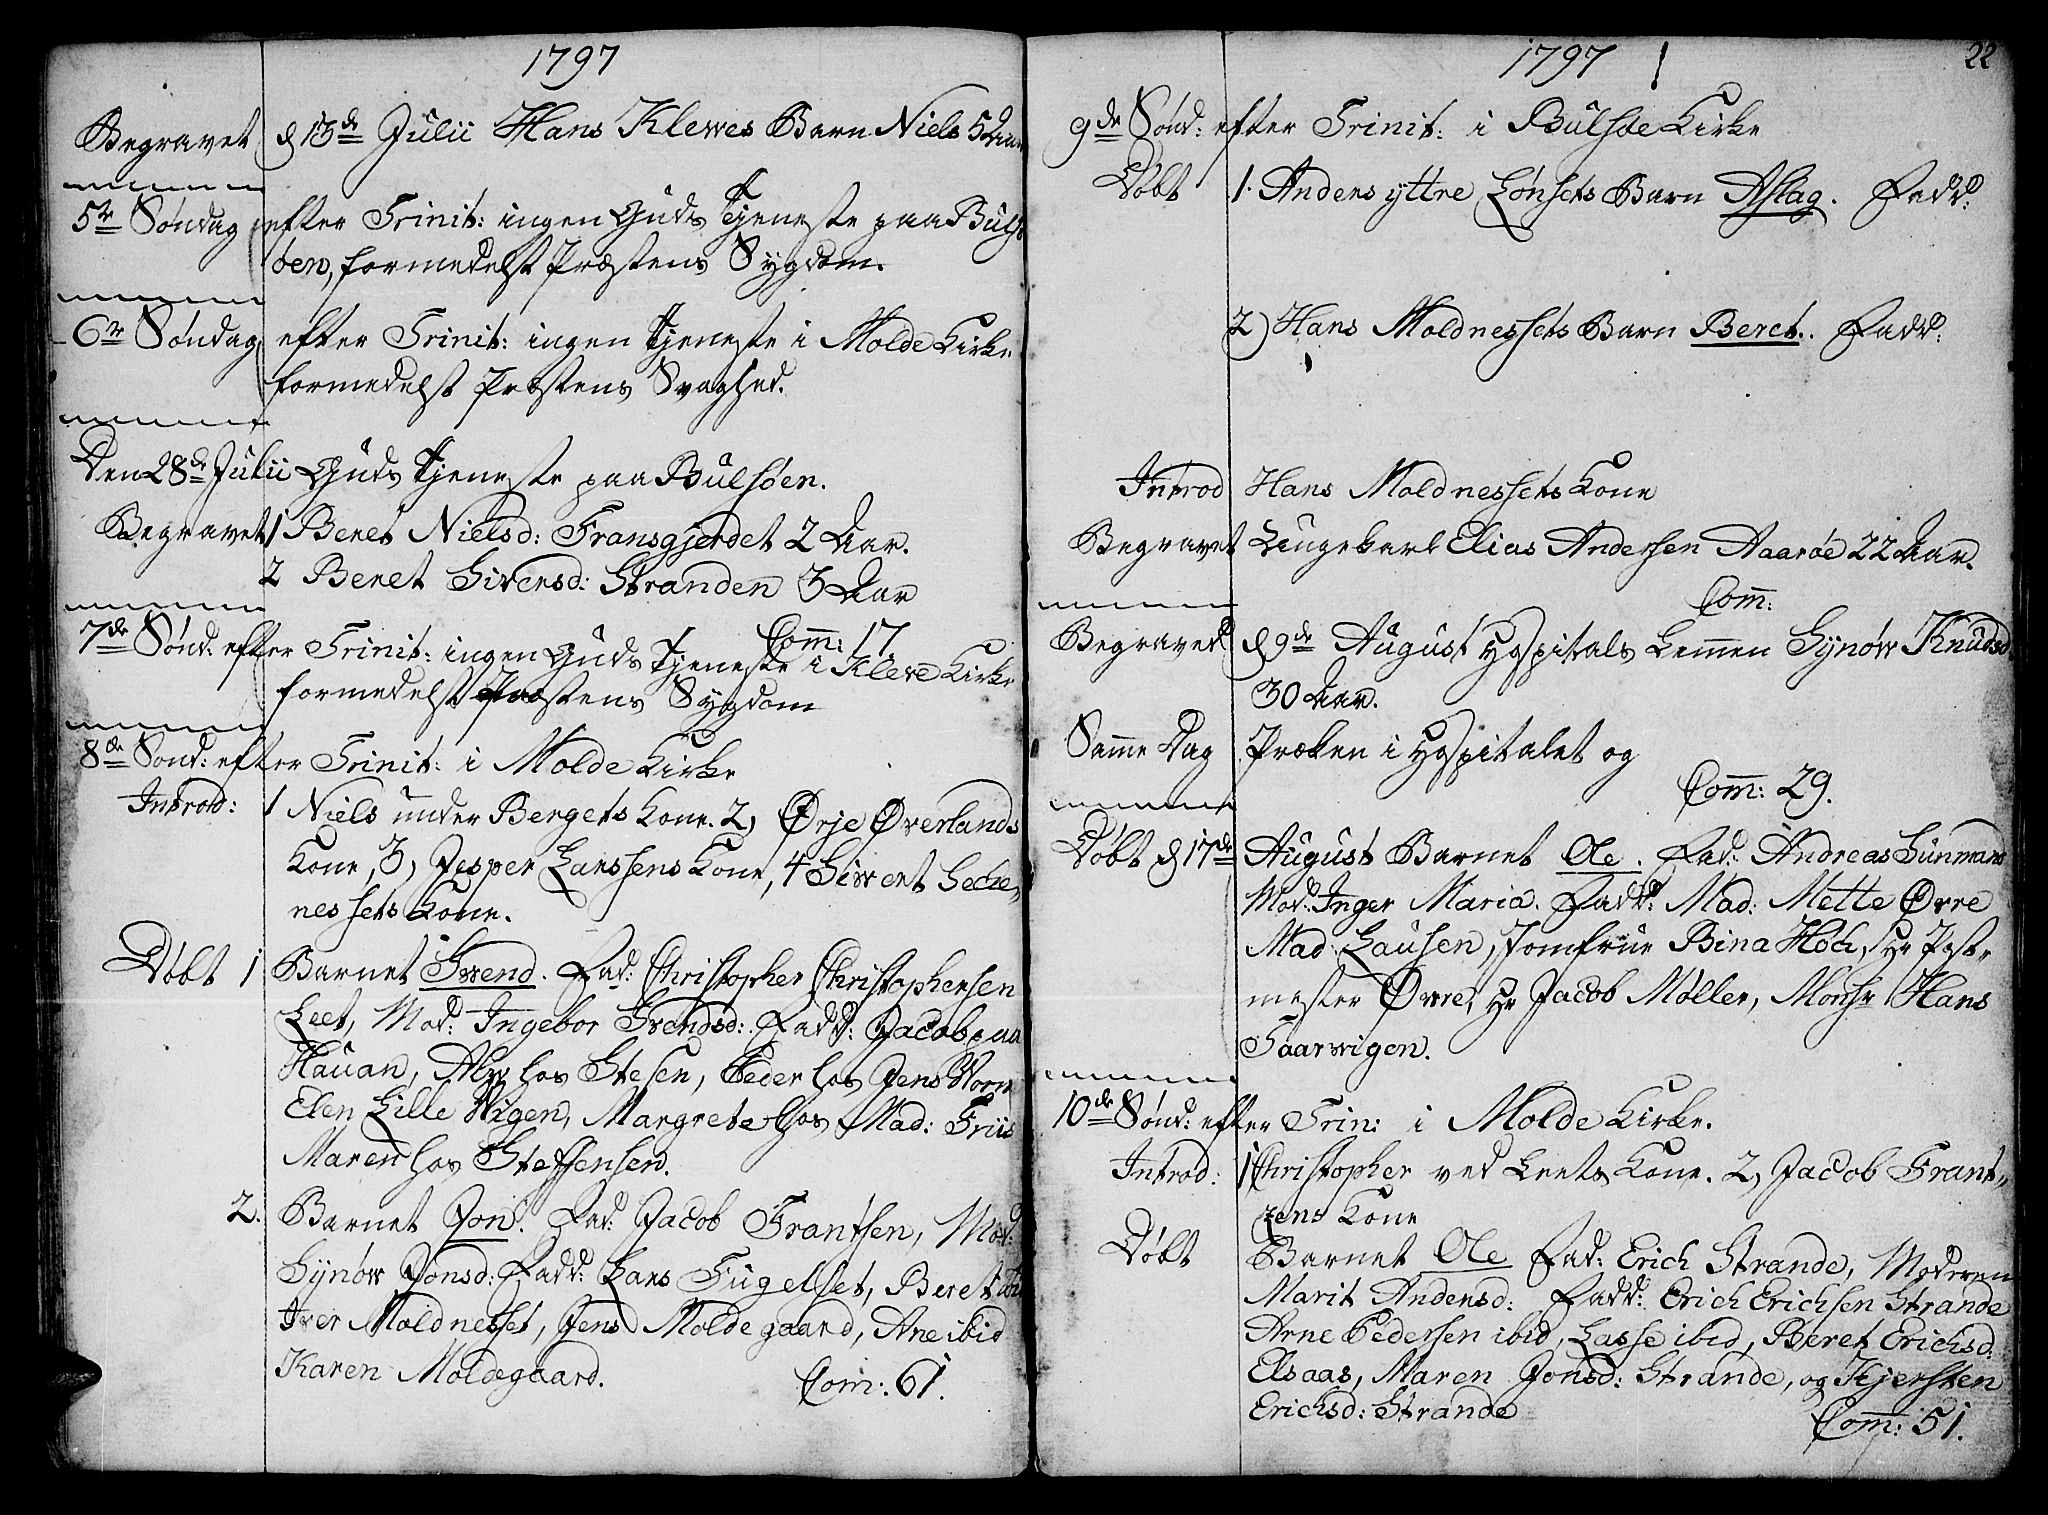 1797
Begravet d 13de Julii Hans Klewes Barn Niels 5 Uur
5te Søndag efter Trinit: ingen Guds Tjeneste paa Buls
øen, formedelst Præstens Sygdom.
6te Søndag efter Trinit: ingen Tjeneste i Molde Kirke
formedelst Præstens Svaghed.
Den 28de Julii Guds Tjeneste paa Bulsøen.
Begravet 1 Beret Nielsd: Fransgjerdet 2 Aar.
2 Beret Siversd: Stranden 3 Aar
Com: 17
7de Sønd: efter Trinit: ingen Guds Tjeneste i Kleve Kirke
formedelst Præstens Sygdom
8de Sønd: efter Trinit: i Molde Kirke
Introd: 1 Niels under Bergets Kone. 2, Ørje Øverlands
Kone, 3, Jesper Larssens Kone, 4 Siwert Seche,
nessets Kone.
Døbt 1 Barnet Svend. Fad: Christopher Christophersen
Leet, Mod: Ingebor Svendsd: Fadd: Jacob paa
Hauan, hos Stesen, Peder hos Jens Worm
Elen Lille Wigen, Margrete hos Mad: Friis
Maren hos Steffensen.
2. Barnet Jon. Fad: Jacob Frantsen, Mod:
Synøw Jonsd: Fadd: Lars Fugelset, Beret
Iver Moldnesset, Jens Moldegaard, Ane ibid
Karen Moldegaard. Com: 61.
1797 22
9de Sønd: efter Trinit: i Bulsøe Kirke
Døbt 1. Anders yttre Lønsets Barn Aslag. Fadd:
2) Hans Moldnessets Barn Beret. Fadd:
Introd Hans Moldnessets Kone
Begravet Ungekarl Elias Andersen Aarøe 22 Aar.
Com:
Begraved d 9de August Hospitals Lemmen Synøw Knudsd
30 Aar.
Samme Dag Præken i Hospitalet og
Com: 29.
Døbt d 17de August Barnet Ole. Fad: Andreas Sunmand
Mod: Inger Maria. Fadd: Mad: Mette Øvre
Mad: Lausen, Jomfrue Bina Hoch, Hr Post-
mester Øvre, Hr Jacob Møller, Monsr Hans
Saarwigen.
10de Sønd: efter Trin: i Molde Kirke.
Introd: 1 Christopher ved Leets Kone. 2, Jacob Frant-
zens Kone
Døbt Barnet Ole Fad: Erich Strande, Moderen
Marit Andersd: Fadd: Erich Erichsen Strande
Arne Pedersen ibid, Lasse ibid, Beret Erichsd:
Elsaas, Maren Jonsd: Strande, og Kjersten
Erichsd: Strande
Com: 51.